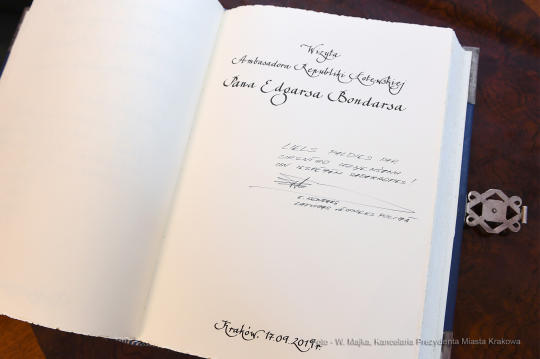 Wizyta
Ambasadora Republiki Łotewskiej
Pana Edgarsa Bondarsa
LIELS PALDIES PAR
UN
E. BONDARS
LATVIJAS
Kraków, 17.09.2019 r.
Foto - W. Majka, Kancelaria Prezydenta Miasta Krakowa